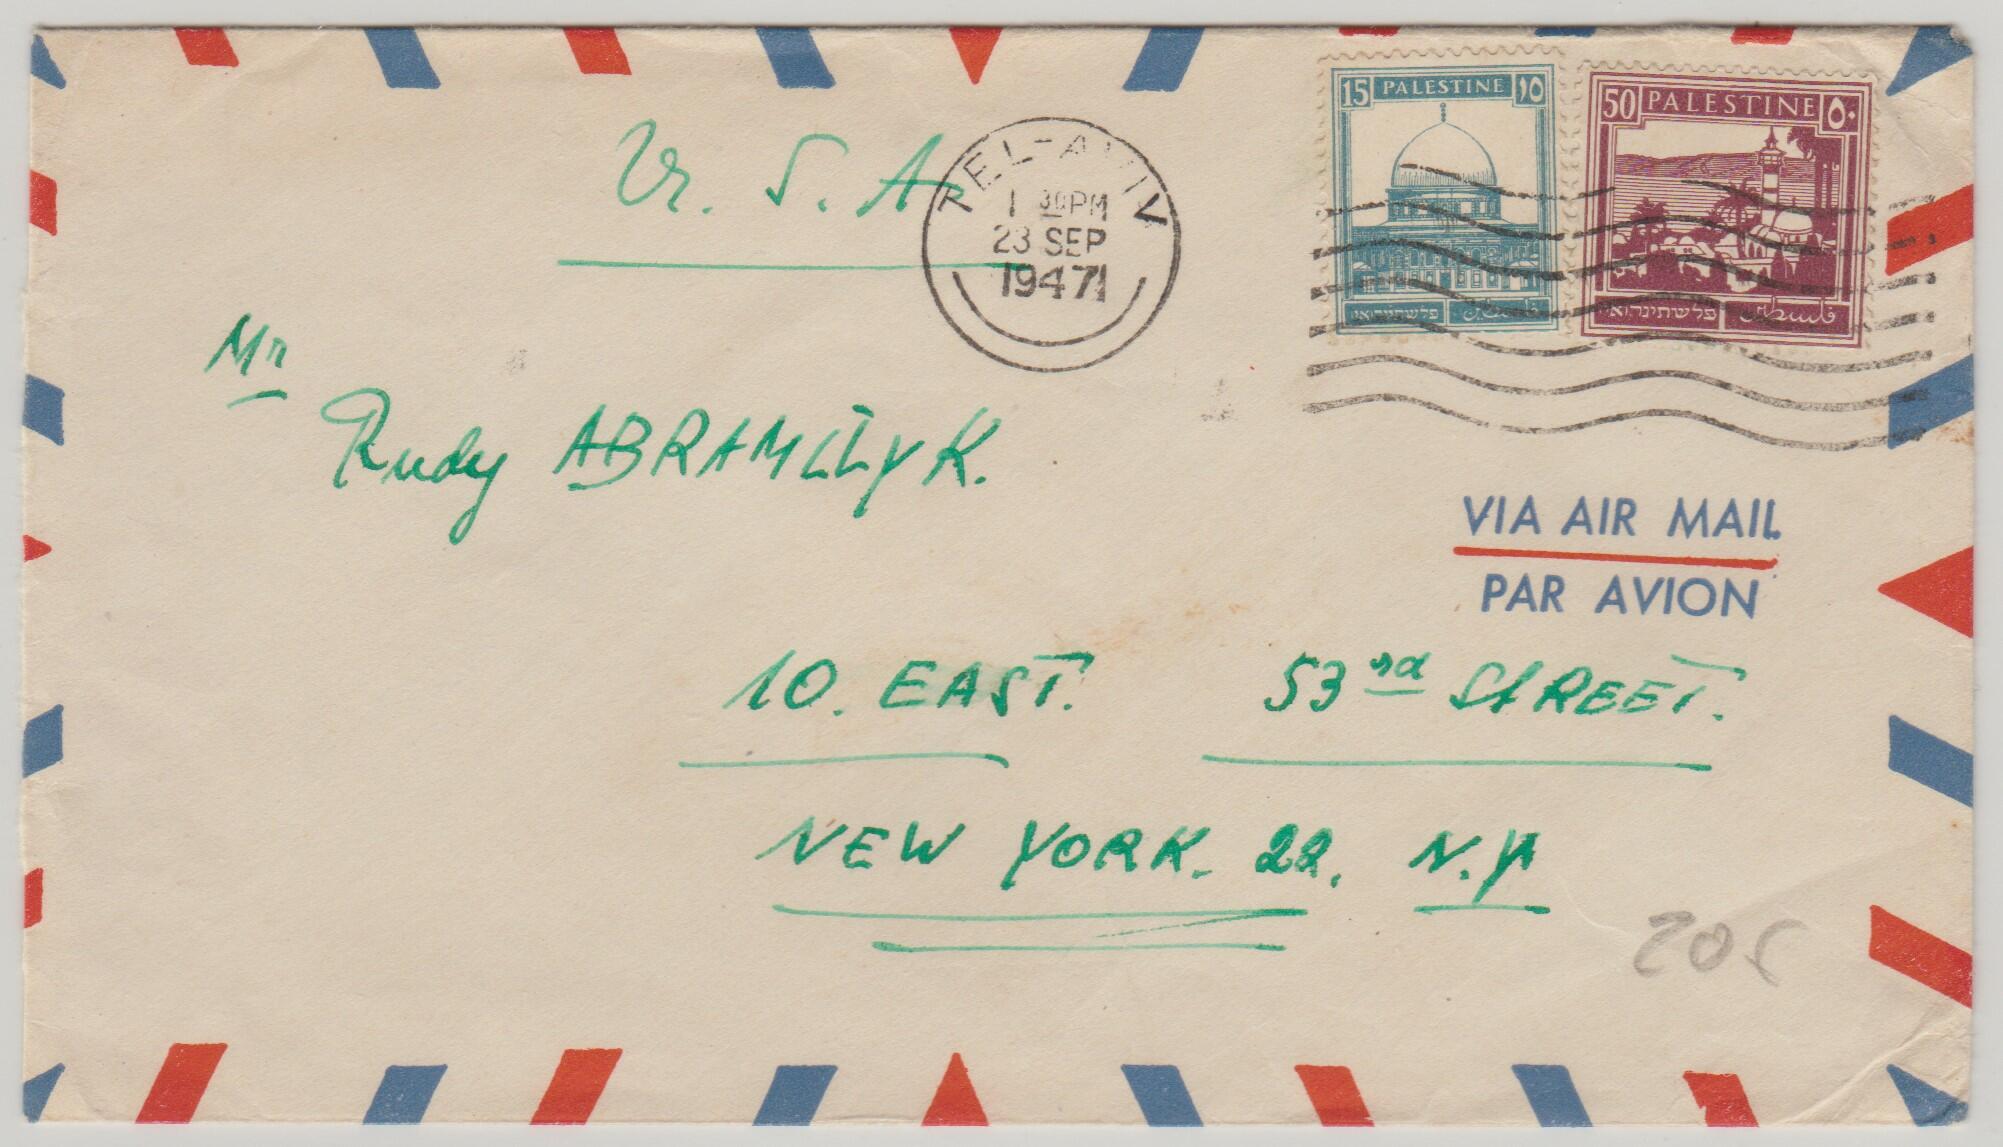 U. S. A.
TEL-AVIV
1 30PM
23 SEP
1947
15 PALESTINE ١٥
פלשתינה א״י فلسطين
50 PALESTINE ٥٠
פלשתינה א״י فلسطين
Mr
Rudy
VIA AIR MAIL
PAR AVION
10. EAST. 53rd STREET.
NEW YORK. 22. N.Y